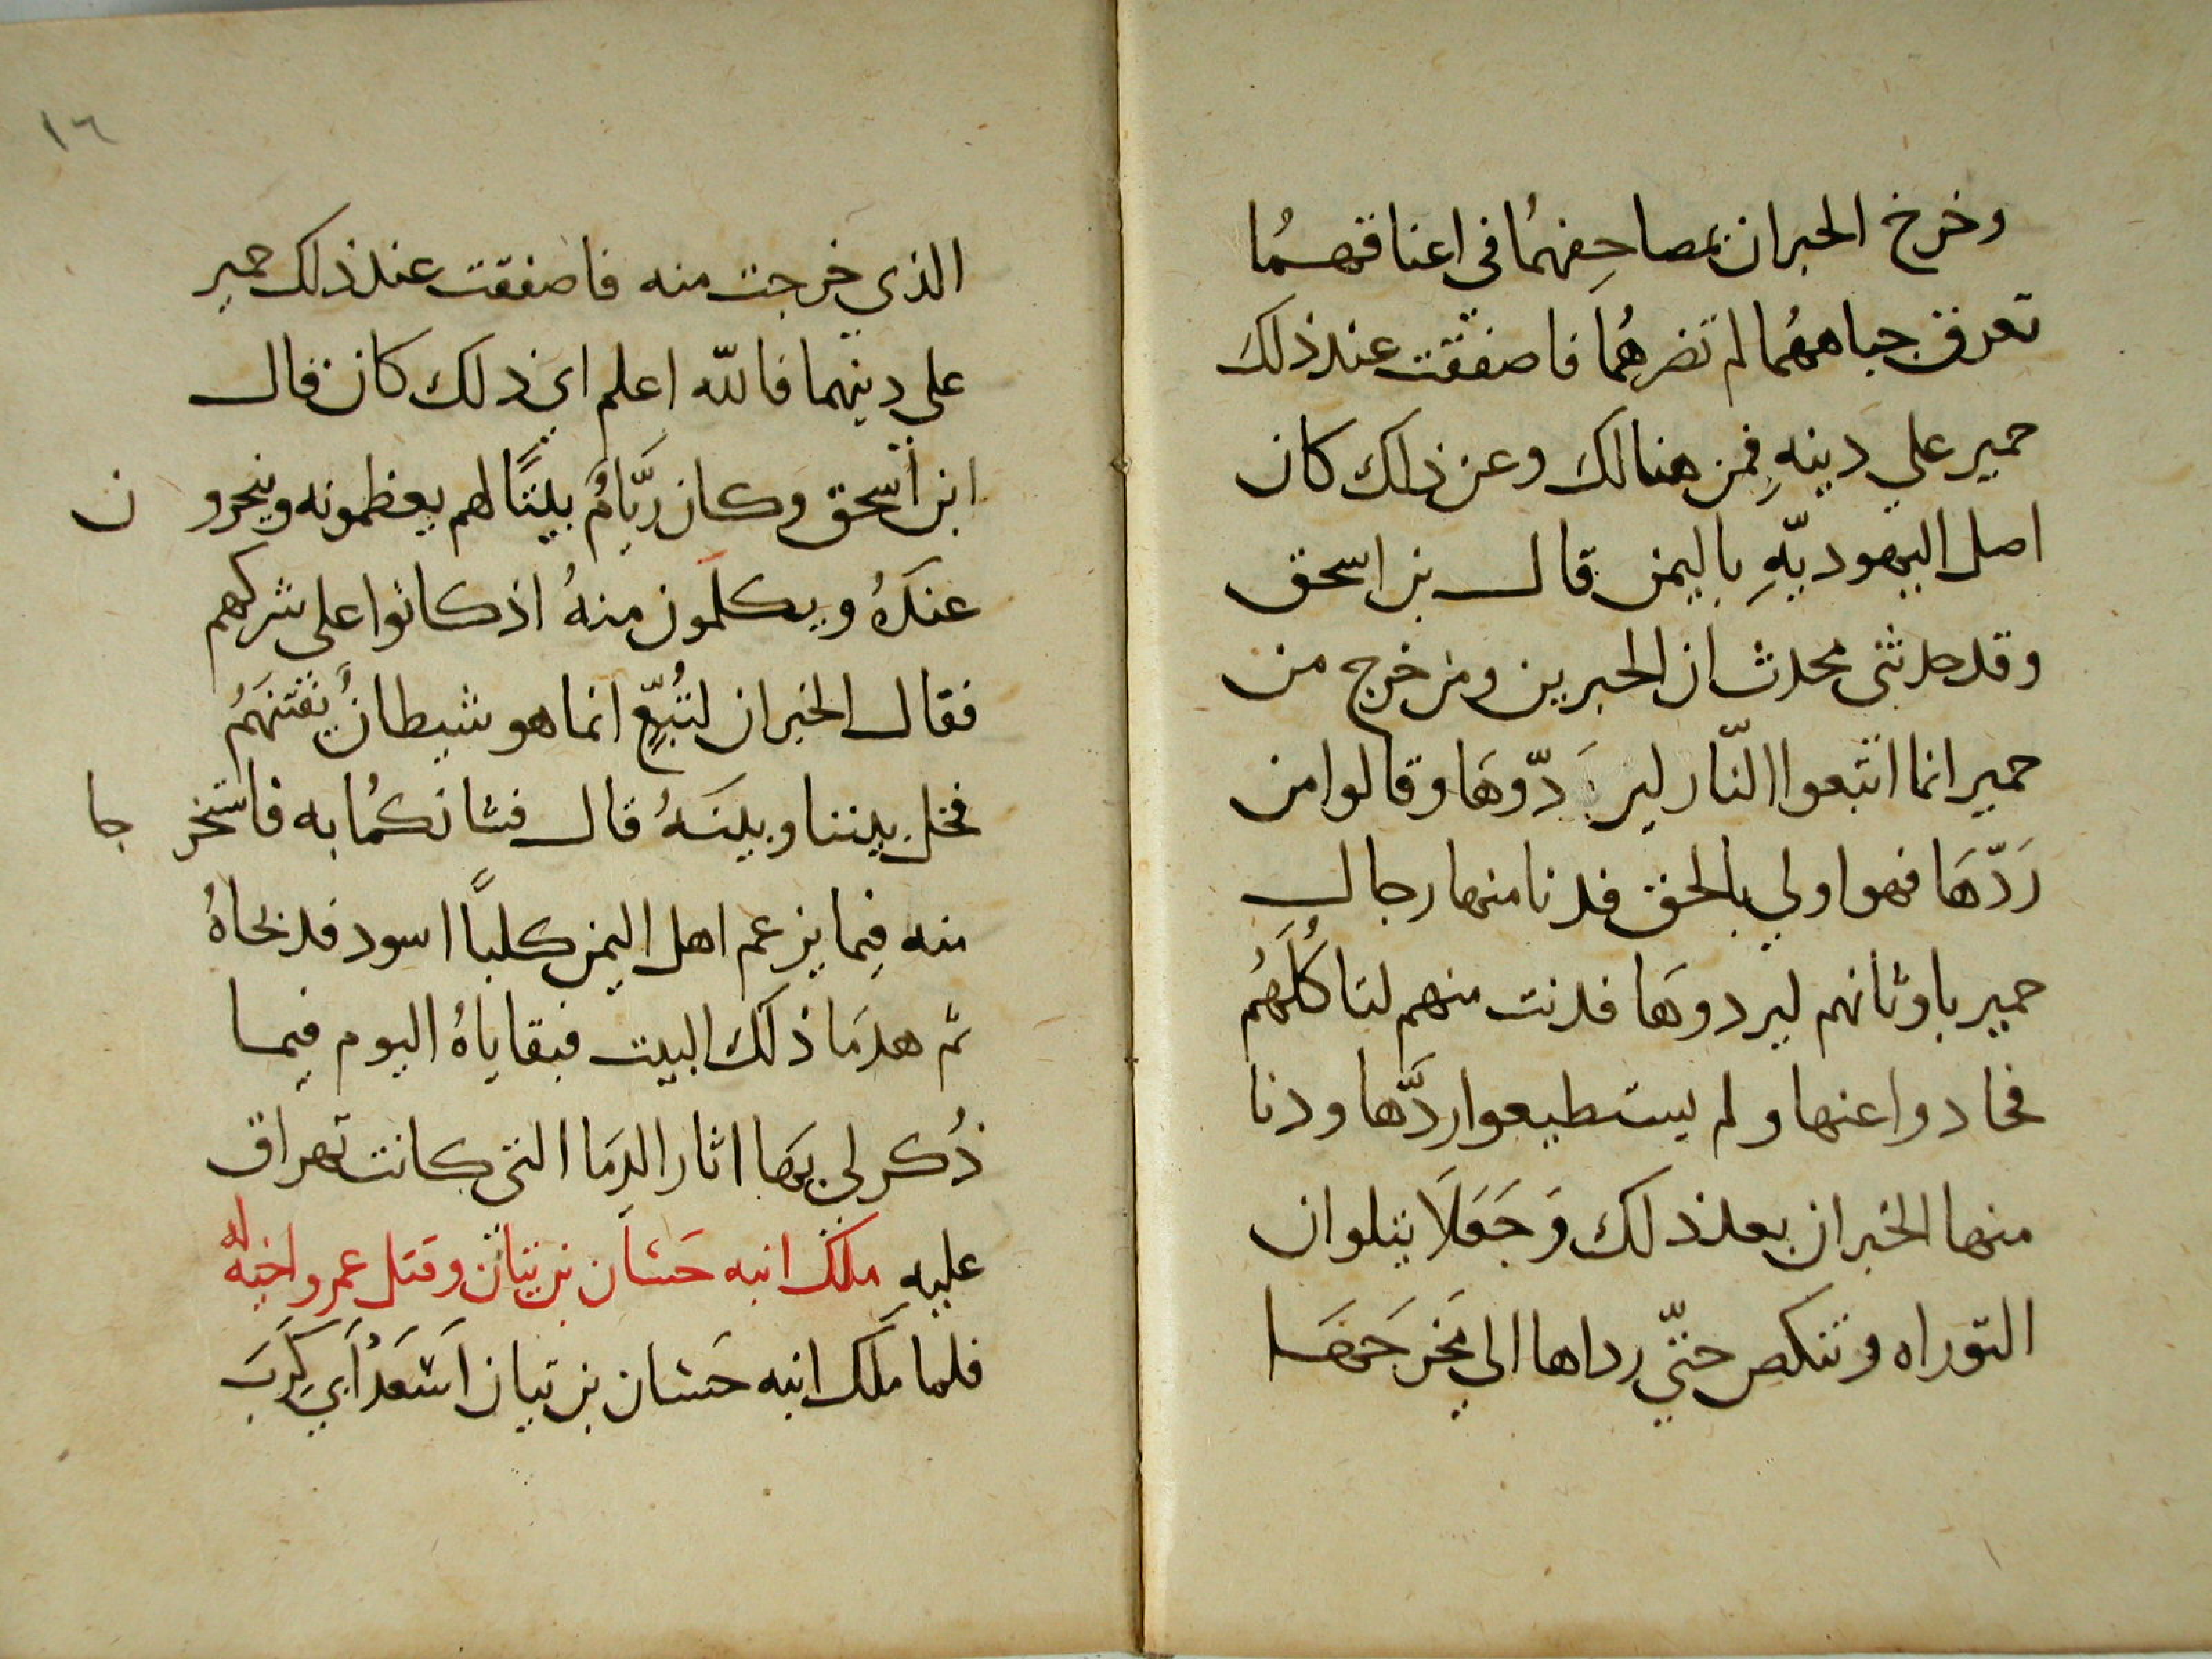 وخرخ الحبران بمصاحِفهمُا في اعناقهمُا
تعرق جباههمُا لم تضرهمُا فاصفقت عند ذلك
حمير علي دينهِ فمن هنالك وعن ذلك كان
اصل اليهوديّهِ باليمن قال بن اسحق
وقد حدثني محدث ان الحبرين ومن خرج من
حمير انما اتبعوا النّار ليردّوهَا وقالوا من
رَدّهَا فهو اولي بالحق فدنا منها رجال
حمير باوثانهم ليردوهَا فدنت منهم لتاكُلَهُم
فحادوا عنها ولم يستطيعوا ردَّها ودنا
منها الخبران بعد ذلك وَجَعَلَا يتلوان
التوراه وتنكص حتّي رداها الي مَخرَجهَا
١٦
الذي خرجت منه فاصفقت عند ذلك حمير
علي دينهما فالله اعلم اي ذلك كان قال
ابن اسحق وكان ريَّامُ بيتًا لهم يعظمونه وينحرون
عندَهُ ويكلمون منهُ اذ كانوا علي شركهم
فقال الخبران لتُبّعٍ انما هو شيطانُ يفتنهَمُ
فخل بيننا وبينَهُ قال فشانكمُا به فاستخرجا
منه فيما يزعم اهل اليمن كلبًا اسود فدبحَاهُ
ثم هدمَا ذلك البيت فبقاياهُ اليوم فيما
ذُكر لي بهَا اثار الدمَا التي كانت تهراق
عليه ملك ابنه حَسَّان بن تبان وقتل عمرو اخيه له
فلما مَلَك ابنه حَسَّان بن تبان اَسَعَدْ اَبي كَرِبَ